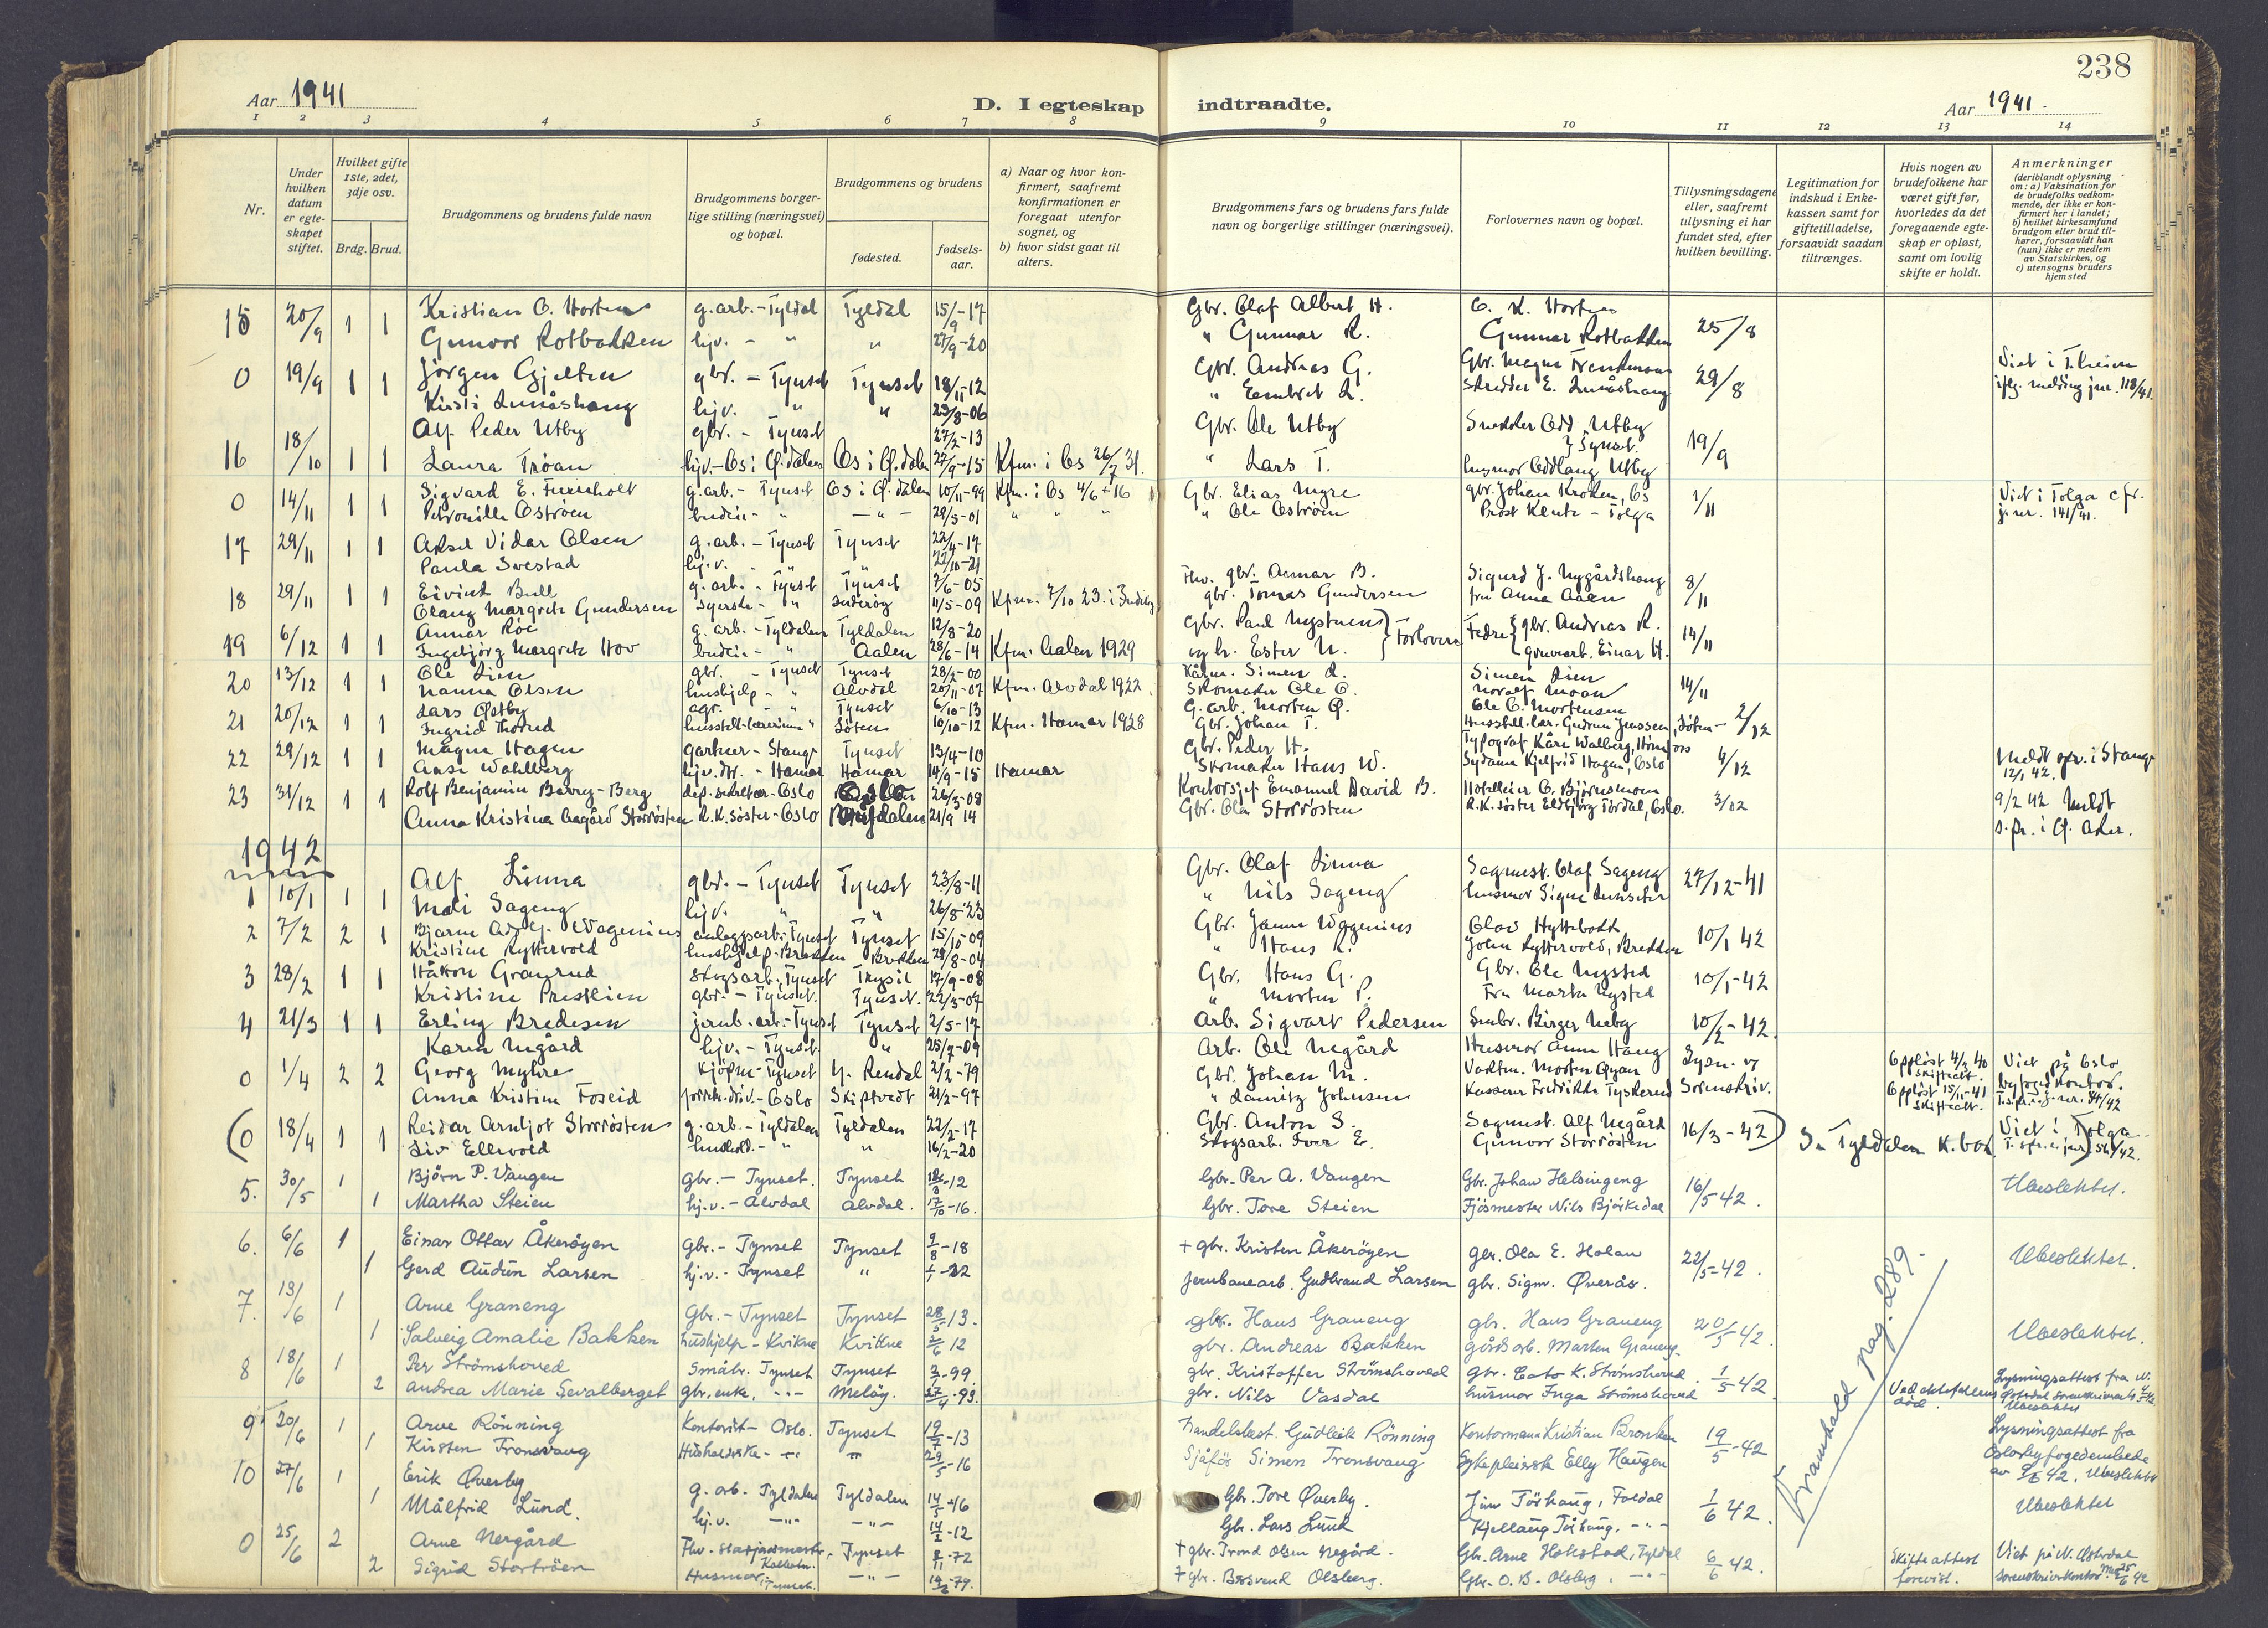 238
Aar 1941
D. I egteskap indtraadte.
Aar 1941.
1 2 3 4 5 6 7 8 9 10 11 12 13 14
Nr.
Under hvilken datum er egteskapet stiftet.
Hvilket gifte 1ste, 2det, 3dje osv.
Brdg. Brud.
Brudgommens og brudens fulde navn
Brudgommens borgerlige stilling (næringsvei) og bopæl.
Brudgommens og brudens
fødested.
fødselsaar.
a) Naar og hvor konfirmert, saafremt konfirmationen er foregaat utenfor sognet, og
b) hvor sidst gaat til alters.
Brudgommens fars og brudens fars fulde navn og borgerlige stillinger (næringsvei).
Forlovernes navn og bopæl.
Tillysningsdagene eller, saafremt tillysning ei har fundet sted, efter hvilken bevilling.
Legitimation for indskud i Enkekassen samt for giftetilladelse, forsaavidt saadan tiltrænges.
Hvis nogen av brudefolkene har været gift før, hvorledes da det foregaaende egteskap er opløst, samt om lovlig skifte er holdt.
Anmerkninger (deriblandt oplysning om: a) Vaksination for de brudefolks vedkommende, der ikke er konfirmert her i landet; b) hvilket kirkesamfund brudgom eller brud tilhører, forsaavidt han (hun) ikke er medlem av Statskirken, og c) utensogns bruders hjemsted
15 20/9 1 1 Kristian O. Horten g.arb. - Tyldal Tyldal 15/9-17 Gbr. Olaf Albert H. O. K. Horten 25/8
Gunvor Rotbakken hjv. - " " 27/9-20 " Gunnar R. Gunnar Rotbakken
0 19/9 1 1 Jörgen Gjelten gbr. - Tynset Tynset 18/11-12 Gbr. Andreas G. 29/8 Viet i T.heim
Kirsti hjv. " " 23/8-06 " Embret L. iflg. melding jnr. 118/41.
16 18/10 1 1 Alf Peder Utby gbr. - Tynset 27/2-13 Gbr. Ole Utby Snekker Odd Utby } Tynset. 19/9
Laura Tröan hjv. - Os i Ø.dalen Os i Ø.dalen 27/9-15 Kfm. i Os 26/7 31. " Lars T. husmor Oddlaug Utby
0 14/11 1 1 Sigvard E. g.arb. - Tynset Os i Ø.dalen 10/11-99 Kfm. i Os 4/6-16 Gbr. Elias Myre gbr. Johan Kroken, Os 1/11 Viet i Tolga cfr.
Petronille Oströen budeie - " - " - 28/5-01 " " " " Ole Oströen Prost Klentz - Tolga j.nr. 141/41.
17 29/11 1 1 Aksel Vidar Olsen g.arb. - Tynset Tynset 22/4-17
Paula Svestad hj.v. " " 22/10-21
18 29/11 1 1 Eivind Bull g.arb. - Tynset Tynset 7/6-05 Fhv. gbr. Annar B. Sigurd J. Nygårdshaug 8/11
Olaug Margrete Gundersen syerske - " Inderöy 11/5-09 Kfm. 7/10 23. i Inderöy gbr. Tomas Gundersen fru Anna Aaen
19 6/12 1 1 Annar Röe g.arb. - Tyldalen Tyldalen 12/8-20 Gbr. Paul Nystuen } Forlovere Fedre { gbr. Andreas R. 14/11
Ingebjörg Margrete Hov budeie - " Aalen 28/6-14 Kfm. Aalen 1929 og hr. Ester N. gruvearb. Einar H.
20 13/12 1 1 Ole Lien gbr. - Tynset Tynset 28/2-00 Simen L. Simen Lien 14/11
Nanna Olsen hushjelp - " Alvdal 20/11-07 Kfm. Alvdal 1922. Skomaker Ole O. Moan
21 20/12 1 1 Lars Østby agr. - " Tynset 6/10-13 G.arb. Morten Ø. Ole O. Mortensen 2/12
Ingrid husstell-lærerinne " Löten 10/10-12 Kfm. Hamar 1928 Gbr. Johan T. Husstell.lær. Gudrun Jenssen, Löten -
22 29/12 1 1 Magne Hagen gartner - Stange Tynset 13/4-10 Gbr. Peder H. Typograf Kåre Walberg, 4/12 Meldt spr. i Stange
Aase Wahlberg hjv.dtr. - Hamar Hamar 14/9-15 Hamar Skomaker Hans W. Sydame Kjelfrid Hagen, Oslo 12/1 42.
23 31/12 1 1 Rolf Benjamin Berg dep. sekretær - Oslo Oslo 26/3-08 Kontorsjef Emanuel David B. Hotelleier O. Björnsmoen 3/12 9/2 42 Meldt
Anna Kristina Aagård Storrösten R.K. söster - Oslo Tyldalen 21/9 14 Gbr. Ola Storrösten R.K. söster Eldbjörg Tördal, Oslo. s.pr. i Ø. Aker.
1942
1 10/1 1 1 Alf Linna gbr. - Tynset Tynset 23/8-11 Gbr. Olaf Linna Sagmest. Olaf Sageng 27/12-41
Mali Sageng hjv. " " 26/8-23 " Nils Sageng husmor Signe
2 7/2 2 1 Bjarne Adolf Wagenius anleggsarb. Tynset Tynset 15/10-09 Gbr. Janne Waggenius Olav Hyttebakk 10/1 42
Kristine Ryttervold hushjelp - Brekken Brekken 28/8-04 " Hans R. John Ryttervold, Brekken
3 28/2 1 1 Håkon Granrud skogsarb. Tynset Trysil 17/9-08 Gbr. Hans G. Gbr. Ole Nysted 10/1-42
Kristine Prestlien gbr. - Tynset. Tynset. 22/3-07 " Morten P. Fru Marta Nysted
4 21/3 1 1 Erling Bredesen jernb.arb. - Tynset Tynset 2/5-17 Arb. Sigvart Pedersen Smbr. Birger Neby 10/2-42.
Karen Negård hjv. - Tynset. " 25/7-09 Arb. Ole Negård Husmor Anne Haug
0 1/4 2 2 Georg Myhre kjöpm. Tynset Y. Rendal 2/2-79 Gbr. Johan M. Vaktm. Morten Øyan Lysn. v/ Oppløst 4/3 40 skiftealt. Viet på Oslo
Anna Kristine Foseid - Oslo Skiptvedt 21/2-97 " Lauritz Johnsen Kasserer Fredrikke Tyskerud Sorenskriv. Oppløst 15/11-41 skiftealt. byfogd kontor.
(0 18/4 1 1 Reidar Arntljot Storrösten g.arb. - Tyldalen Tyldalen 22/2-17 Gbr. Anton S. Sagmest. Alf Negård 16/3-42) Se Tyldalen K.bok Viet i Tolga
Liv Ellevold hushold. - " " 16/2-20 Skogsarb. Iver E. Gunvor Storrösten
5. 30/5 1 Björn P. Vangen gbr. - Tynset. Tynset 12 Gbr. Per A. Vangen Gbr. Johan Helsingeng 16/5 42. Ubeslektet.
1 Martha Steien hj.v. - Alvdal Alvdal. 17/10-16. Gbr. Tore Steien Fjösmester Nils Björkedal
6. 6/6 1 Einar Ottar Åkeröyen Gbr. - Tynset Tynset 9/8-18 + gbr. Kristen Åkeröyen gbr. Ola E. Holan 22/5-42. Ubeslektet.
1 Gerd Audun Larsen hj.v. - Tynset " 1/1-22 Jernbanearb. Gudbrand Larsen gbr. Sigm. Øverås.
7. 13/6 1 Arne Graneng Gbr. - Tynset Tynset 28/5-13. gbr. Hans Graneng gbr. Hans Graneng 20/5-42. Ubeslektet.
1 Solveig Amalie Bakken hushjelp - Kvikne Kvikne 2/6 12 gbr. Andreas Bakken gårdsarb. Marten Graneng.
8 18/6 1 Per Strömshoved Småbr. Tynset Tynset 3/7-99. gbr. Kristoffer Strömshoved gbr. Eato K. Strömshoved. 1/5-42. Lysningsattest fra N.
2 Andrea Marie Sevalberget gbr. enke, -"- Melöy. 27/4-93. gbr. Nils Vasdal husmor Inga Strömshoved Ved ektefellens död. Østerdal sorenskriverk. Ubeslektet
9 20/6 1 Arve Rönning Kontorist - Oslo. Tynset 19/7-13 Handelsbest. Gudleik Rönning Kontormann Kristian Bronken 19/5-42 Lysningsattest fra
1 Kirsten Tronsvang Husholderske - " " 29/5-16 Sjåför Simen Tronsvang Sykepleierske Elly Haugen Oslo byfogedembede
av 5/6 42. Ubeslektet
10 27/6 1 Erik Øverby g.arb. Tyldalen Tyldalen 14/5-16 Gbr. Tore Øverby. Töshaug, Foldal 1/6 42. Ubeslektet
1 Målfrid Lund. hj.v. -"- -"- 14/2-12 Gbr. Lars Lund Kjellaug Töshaug, -"-
0 25/6 2 Arne Nergård Fhv. stasjonsmester, Tynset 8/11-72 + gbr. Trond Olsen Negård. Gbr. Arne Hokstad, Tyldal 6/6 42. Skifteattest Viet på N. Østerdal
2 Sigrid Storröen Husmor, Tynset. -"- 14/6-79. + gbr. Bersvend Olsberg. Gbr. O. B. Olsberg. -"- forevist. sorenskriverkontor 25/6 42
Framhald pag. 289.